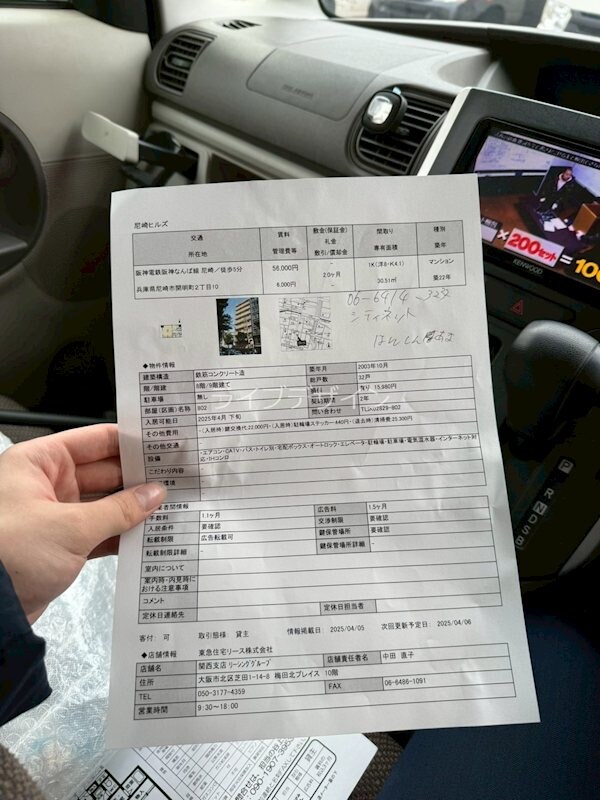 尼崎ヒルズ
交通 賃料 敷金(保証金) 間取り 種別
所在地 管理費等 礼金 敷引/償却金 専有面積 築年
阪神電鉄阪神なんば線 尼崎/徒歩5分 56,000円 - 1K(洋8・K4.1) マンション
兵庫県尼崎市開明町2丁目10 6,000円 2.0ヶ月 - 30.51㎡ 築22年
06-6414-
シティネット
◆物件情報
建築構造 鉄筋コンクリート造 築年月 2003年10月
階/階建 8階/9階建て 総戸数 32戸
駐車場 無し 損料 有り 15,980円
部屋(区画)名称 802 契約期間 2年
入居可能日 2025年4月 下旬 問い合わせ
その他費用 -(入居時)鍵交換代:22,000円-(入居時)駐輪場ステッカー:440円-(退去時)清掃費:25,300円
その他交通
設備 ・エアコン・CATV・バス・トイレ別・宅配ボックス・オートロック・エレベータ・駐輪場・駐車場・電気温水器・インターネット対応・IHコンロ
こだわり内容
環境
業者間情報
手数料 1.1ヶ月 広告料 1.5ヶ月
入居条件 要確認 交渉制限 要確認
転載制限 広告転載可 鍵保管場所 要確認
転載制限詳細 - 鍵保管場所詳細 -
室内について
案内時・内見時における注意事項
コメント
定休日連絡先 定休日担当者
客付: 可 取引態様: 貸主 情報掲載日: 2025/04/05 次回更新予定日: 2025/04/06
◆店舗情報 東急住宅リース株式会社
店舗名 関西支店 リーシンググループ 店舗責任者名 中田 直子
住所 大阪市北区芝田1-14-8 梅田北プレイス 10階
TEL 050-3177-4359 FAX 06-6486-1091
営業時間 9:30~18:00
ライブデザイン
200セット
KENWOOD
P
R
N
D
S
B